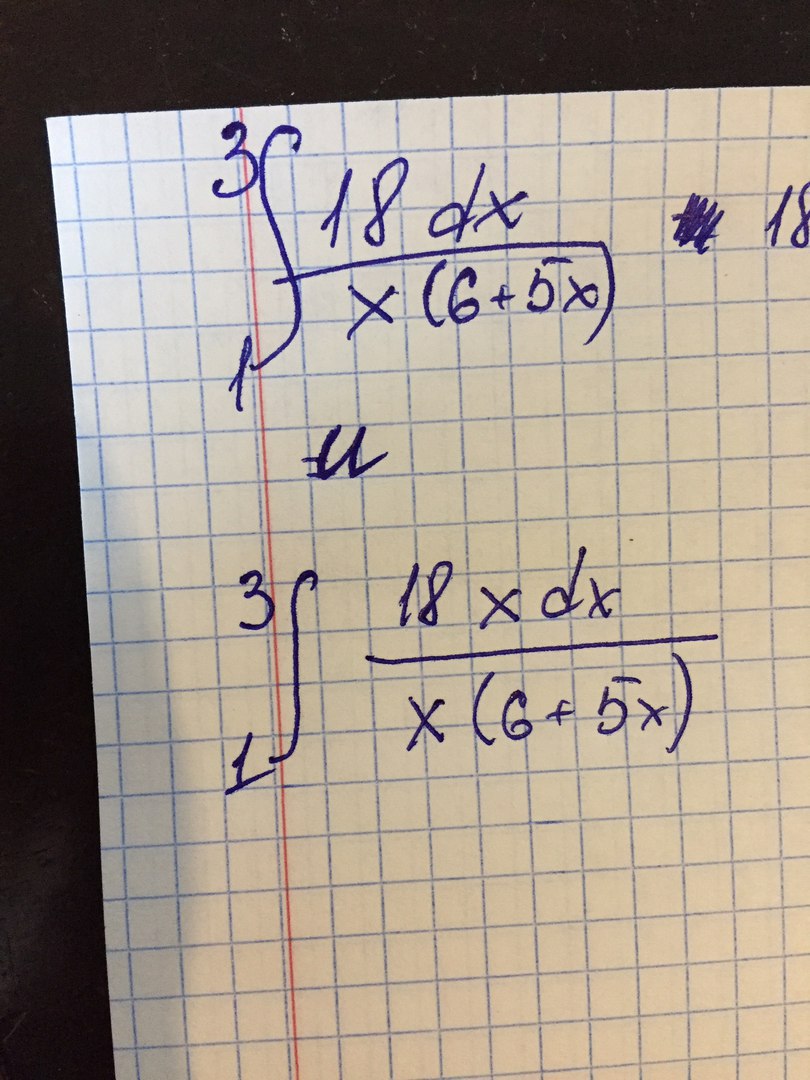 3
∫ 18 dx / x (6 + 5x) 18
1
и
3
∫ 18 x dx / x (6 + 5x)
1